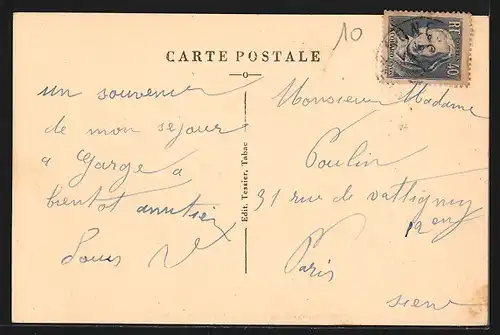 10
RF
40
CARTE POSTALE
un souvenir
de mon sejour
a Garge a
bientot
Louis
Edit. Tessier, Tabac
Monsieur Madame
Poulin
31 rue de Vattigny
12em
Paris
Seine